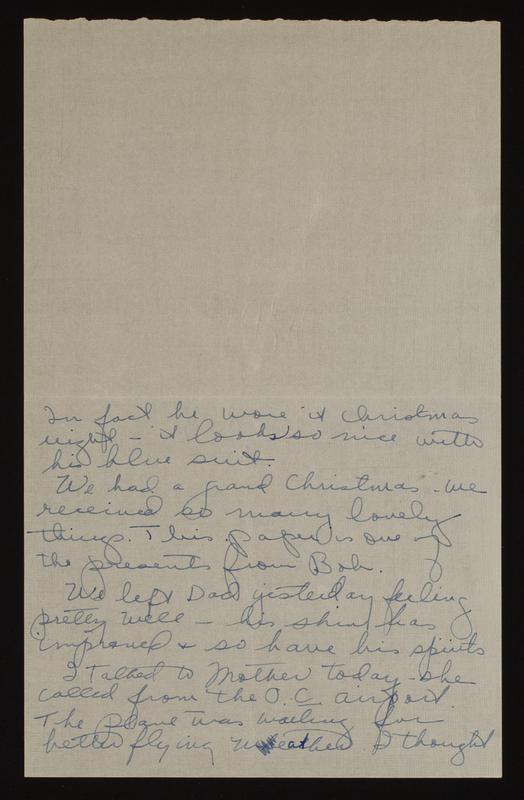 In fact he wore it Christmas
night - it looks so nice with
his blue suit.
We had a grand Christmas - we
received so many lovely
things. This paper is one of
the presents from Bob.
We left Dad yesterday feeling
pretty well - his skin has
improved & so have his spirits
I talked to Mother today - she
called from the O.C. airport.
The plane was waiting for
better flying weather I thought